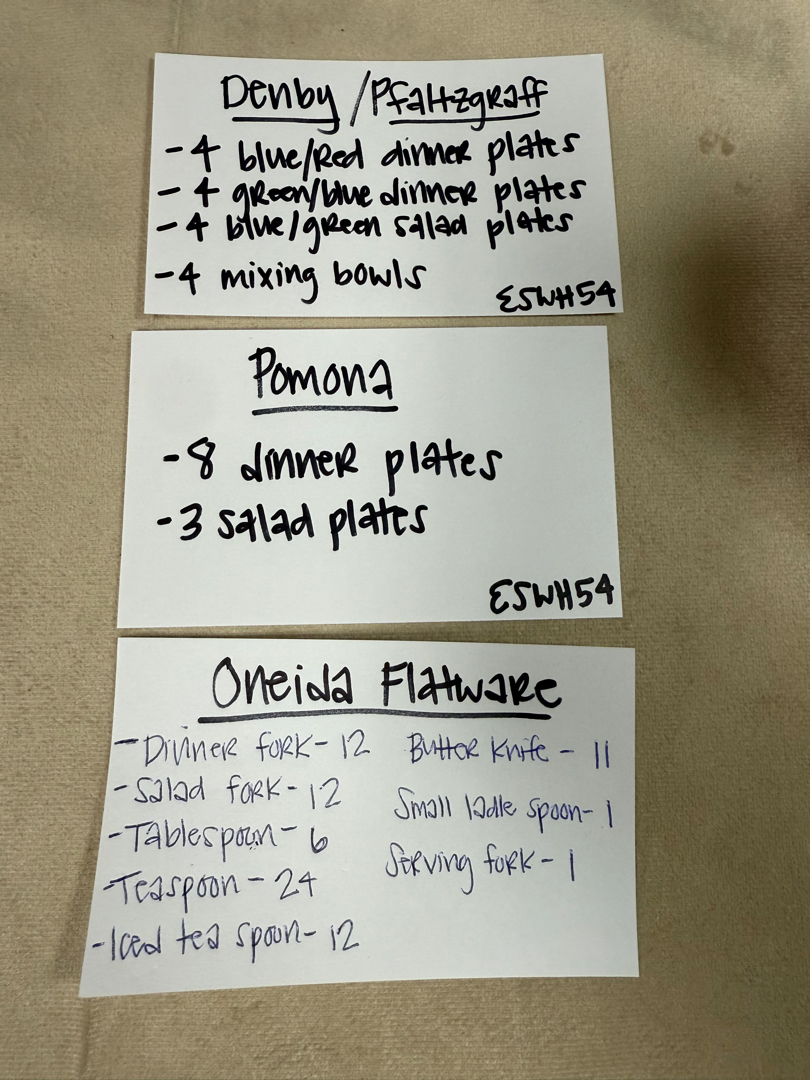 Denby/Pfaltzgraff
- 4 blue/Red dinner plates
- 4 green/blue dinner plates
- 4 blue/green salad plates
- 4 mixing bowls
ESWH54
Pomona
- 8 dinner plates
- 3 salad plates
ESWH54
Oneida Flatware
- Dinner fork - 12
- Salad fork - 12
- Tablespoon - 6
- Teaspoon - 24
- Iced tea spoon - 12
Butter knife - 11
Small ladle spoon - 1
Serving fork - 1